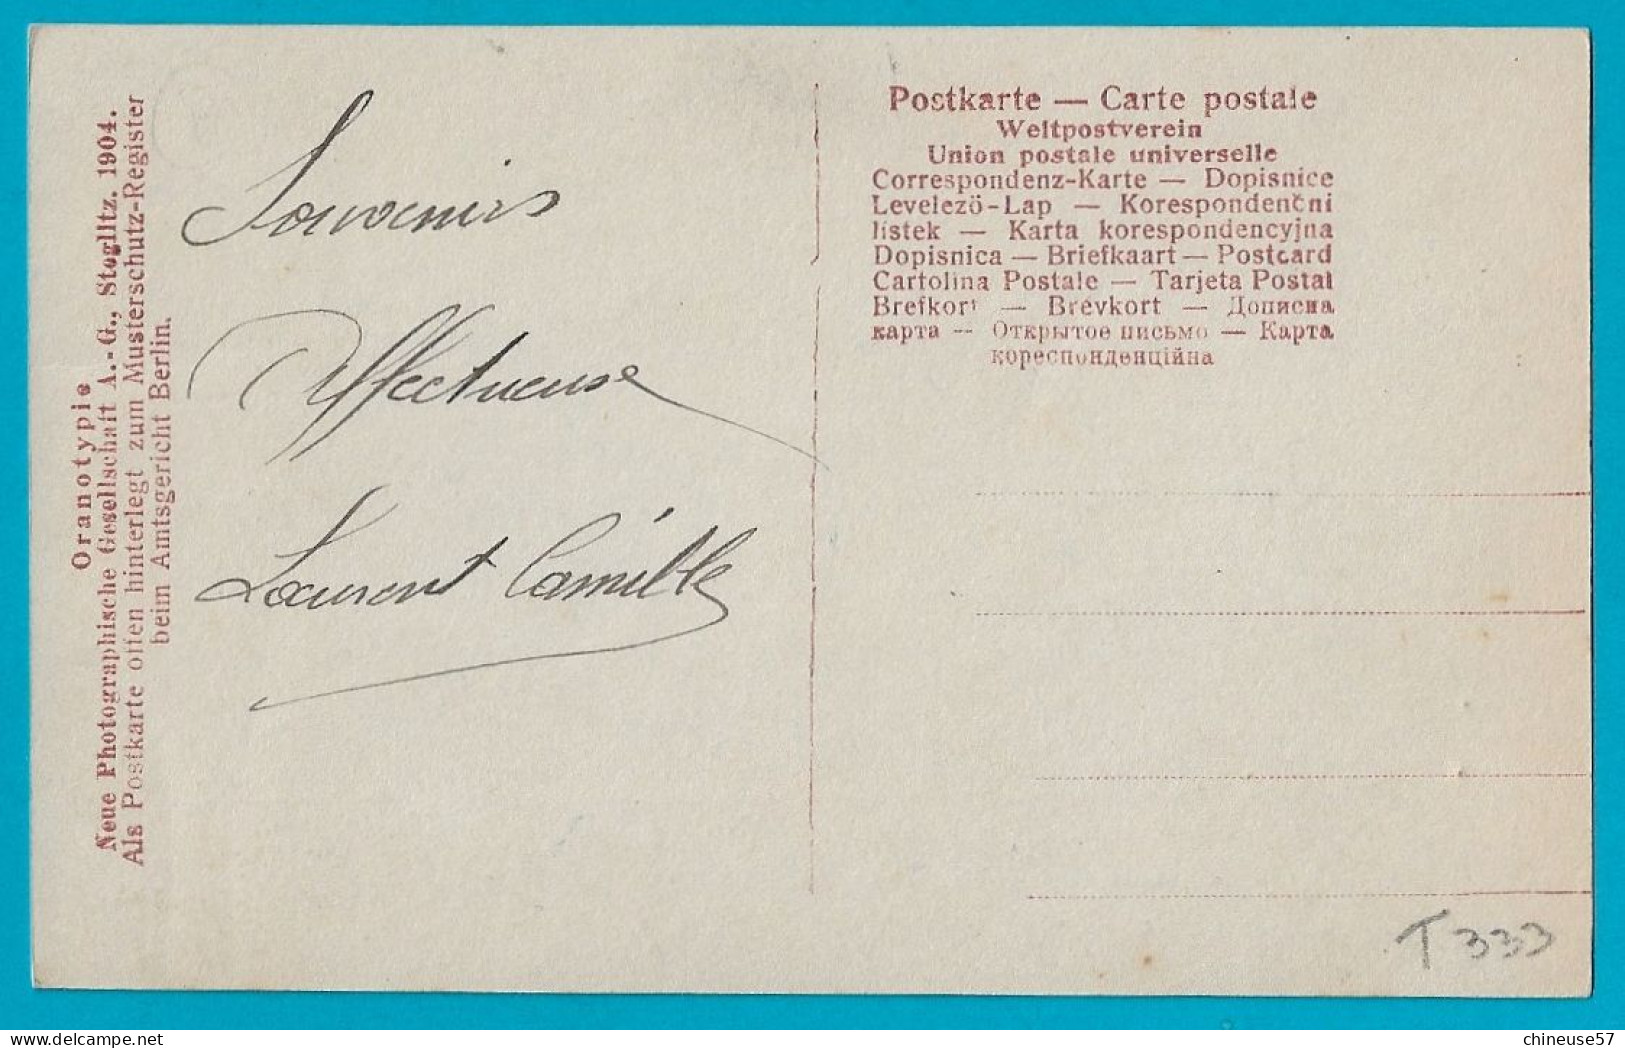 Oranotypie
Neue Photographische Gesellschaft A.-G., Steglitz. 1904.
Als Postkarte offen hinterlegt zum Musterschutz-Register
beim Amtsgericht Berlin.
Souvenirs
Affectueuse
Laurent Camille
Postkarte — Carte postale
Weltpostverein
Union postale universelle
Correspondenz-Karte — Dopisnice
Levelezö-Lap — Korespondenčni
listek — Karta korespondencyjna
Dopisnica — Briefkaart — Postcard
Cartolina Postale — Tarjeta Postal
Brefkort — Brevkort — Дописна
карта — Открытое письмо — Карта
кореспонденційна
T 333
chineuse57